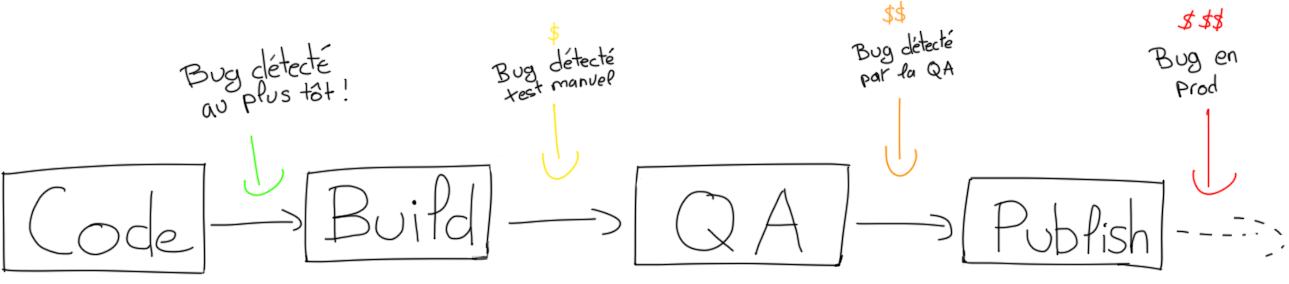 Bug détecté
au plus tôt !
$
Bug détecté
test manuel
$$
Bug détecté
par la QA
$$$
Bug en
Prod
Code
Build
QA
Publish